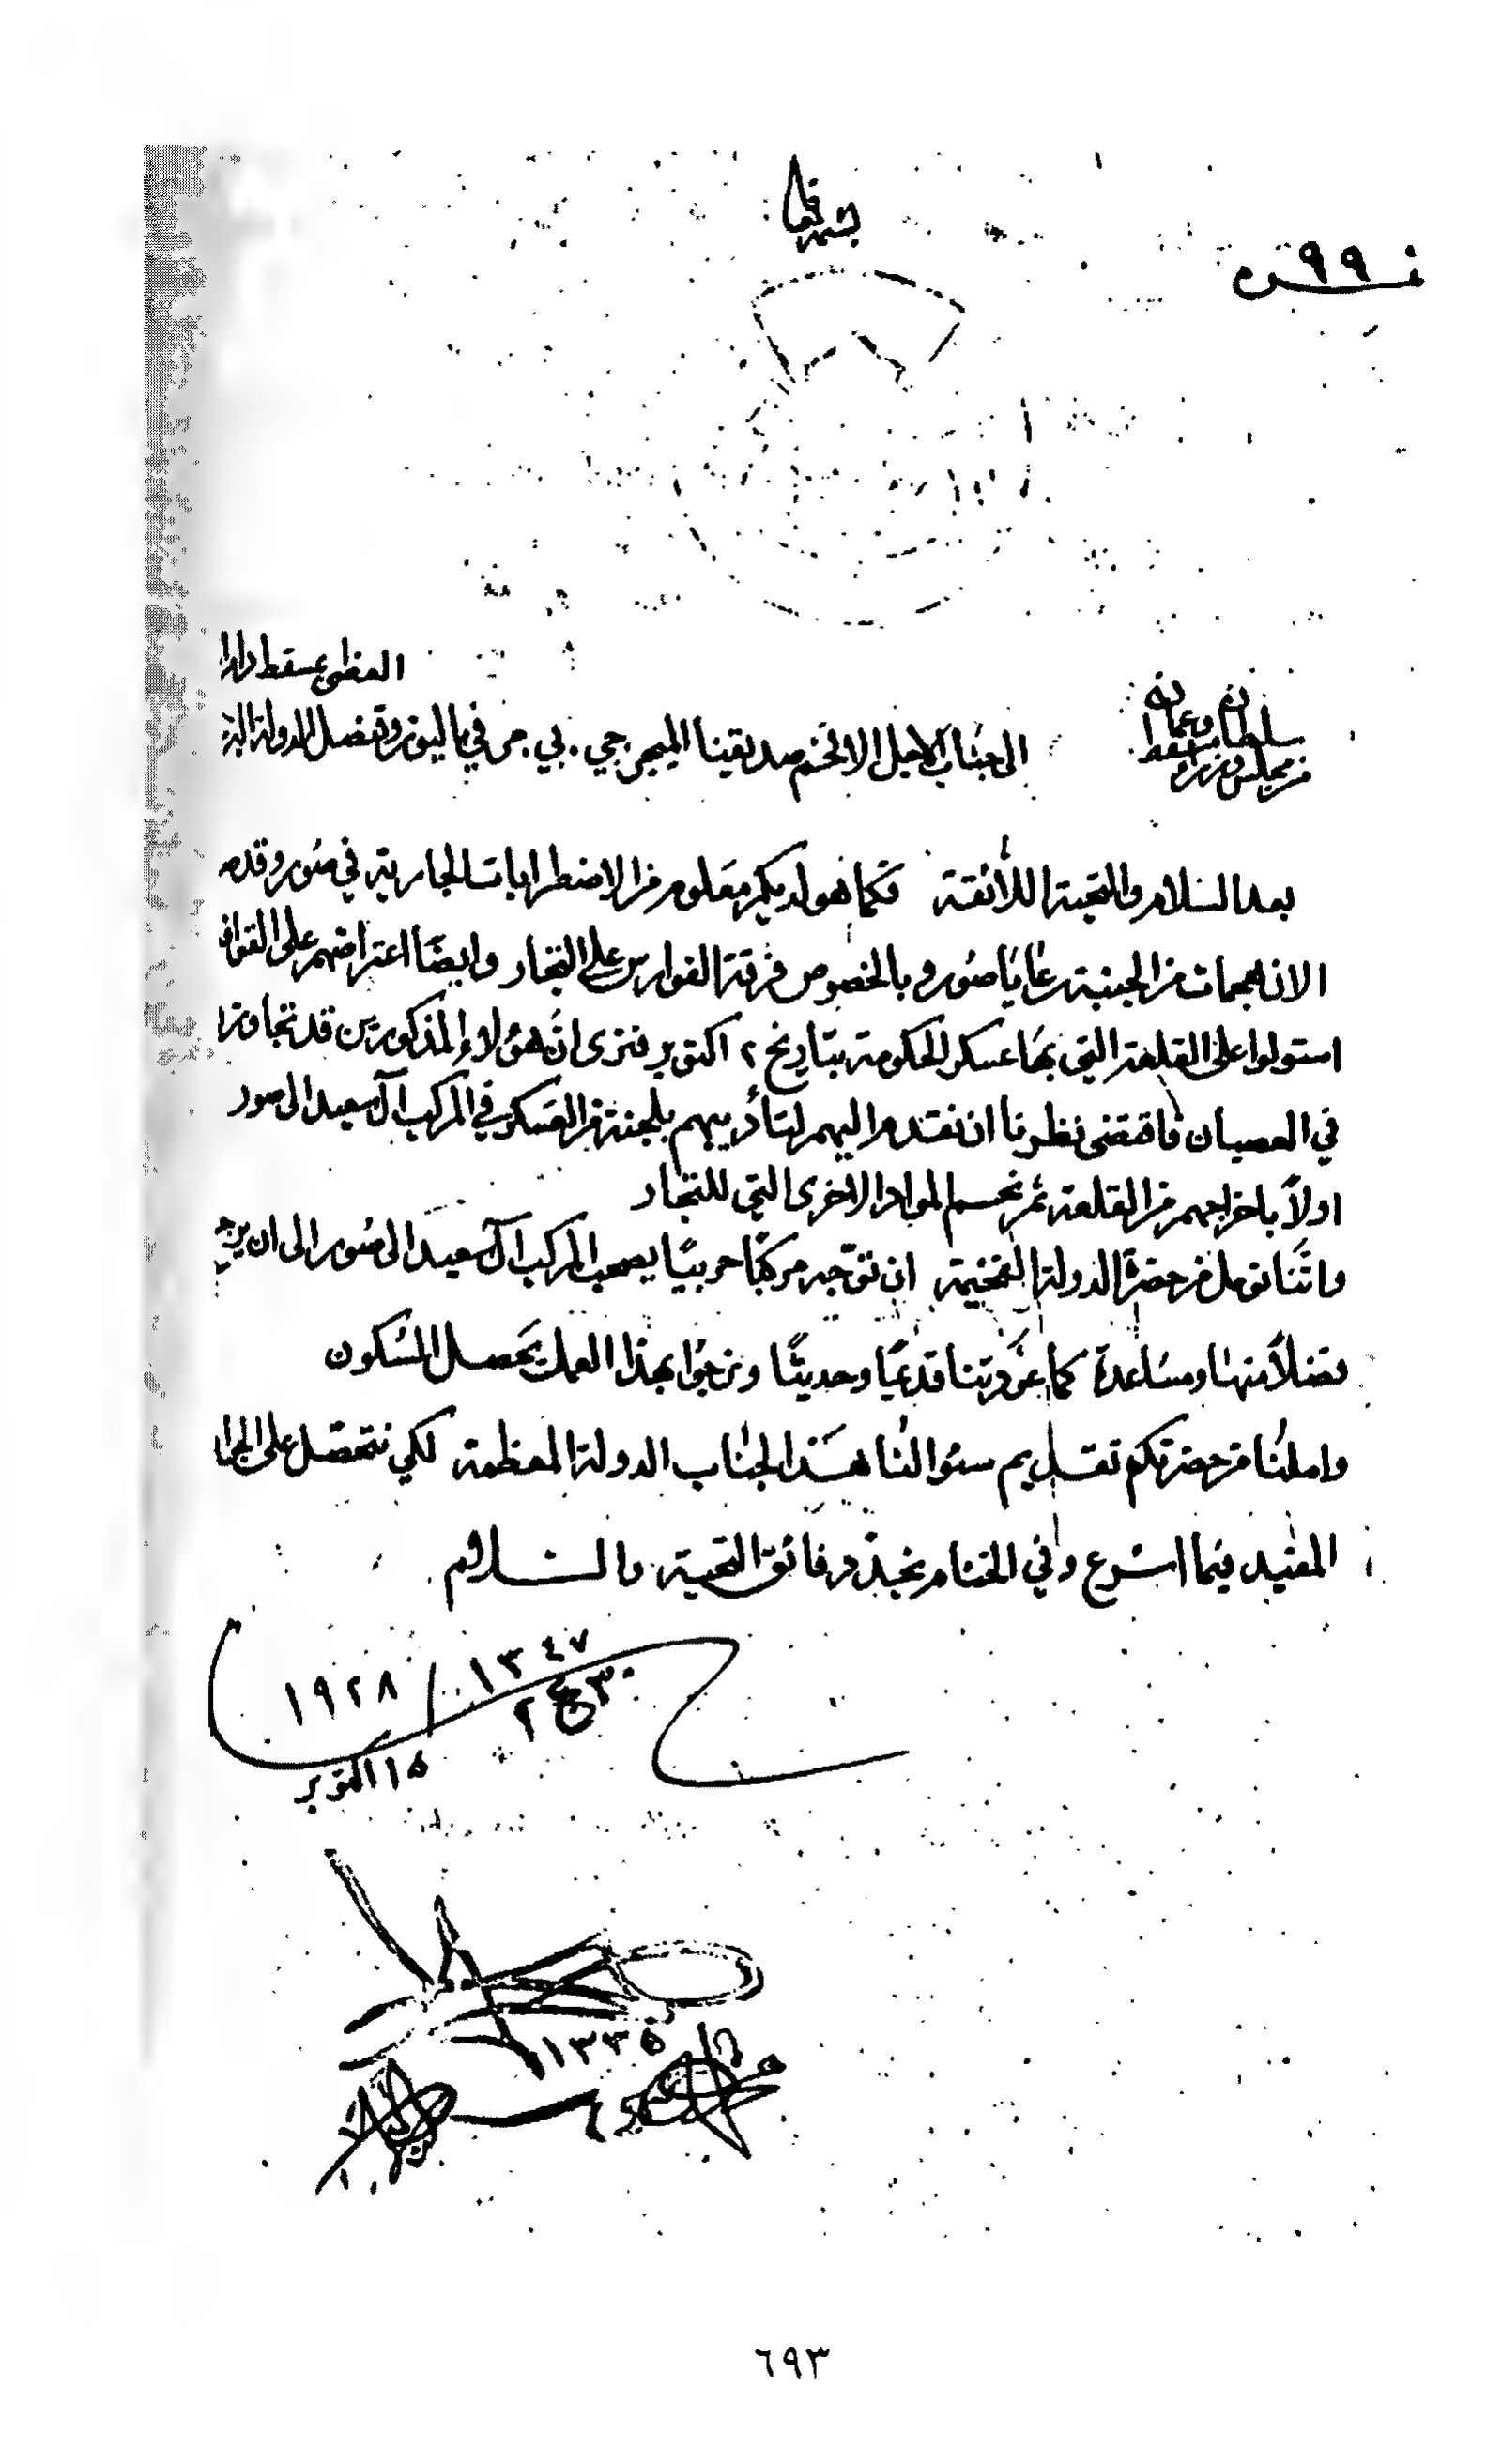 بسمه تعالى
نمبر ٩٩
من مجلس وزراء سلطان مسقط وعمان
الى جناب الاجل الافخم صديقينا الميجر جي. بي. مرفي باليوز وقنصل الدولة البهية
العظمى بمسقط دارا
بعد السلام والتحية اللائقة فكما هو لديكم معلوم من الاضطرابات الجارية في صور وقدم
الان هجمات من الجنبة رعايا صور و بالخصوص فرقة الفوارس على التجار وايضا اعتراضهم على القوافل
استولوا على القلعة التي بها عسكر الحكومة بتاريخ ٢ اكتوبر فنرى انّ هؤلاء المذكورين قد تجاوزوا
في العصيان فاقتضى نظرنا ان نقدم اليهم لتأديبهم بلجنة من العسكر في المركب آل سعيد الى صور
اولاً باخراجهم من القلعة ثم نحسم المواد الاخرى التي للتجار
واننا نؤمل من حضرة الدولة الفخيمة ان توّجه مركبًا حربيًا يصحب المركب آل سعيد الى صور الى ان يرجع
تفضلاً منها ومساعدة كما عوّدتنا قديمًا وحديثًا ونرجوا بهذا العمل يحصل السكون
واملنا من حضرتكم تقديم سئوالنا هذا لجناب الدولة المعظمة لكي نتحصل على الجواب
المفيد فيما اسرع وفي الختام نجدّد فائق التحية والسلام
١٣٤٧ / ١٩٢٨
٣٠ ع ٢
١٥ اكتوبر
١٣٣٥
٦٩٣